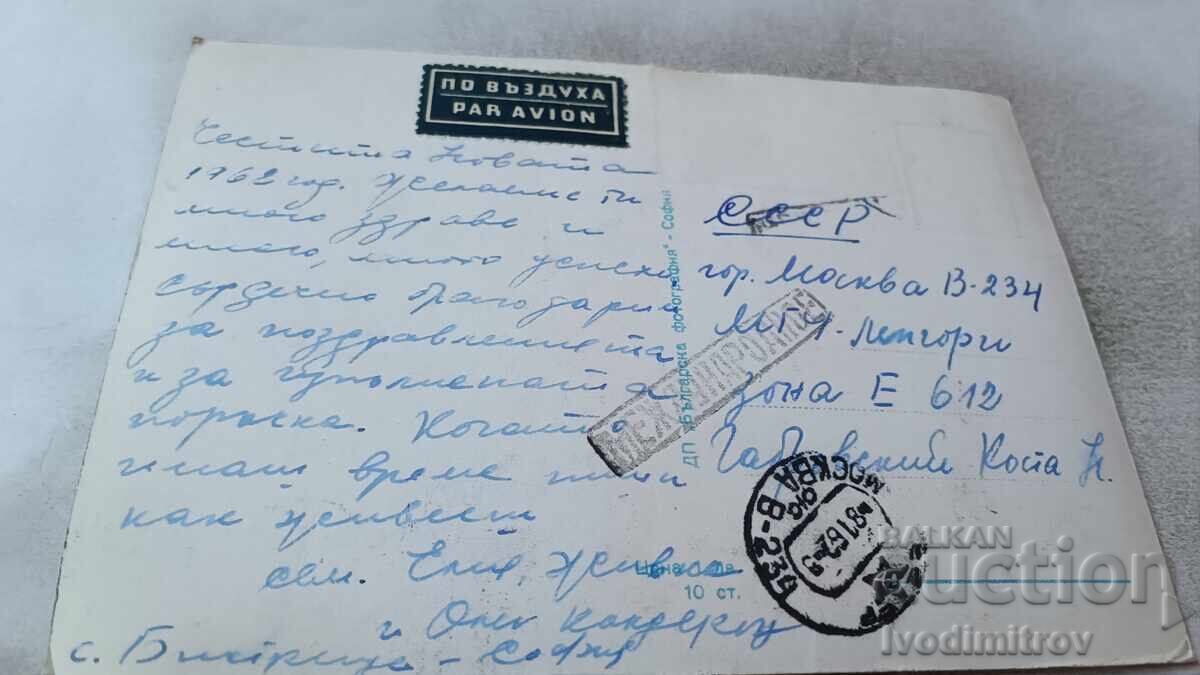 ПО ВЪЗДУХА
PAR AVION
Честита Новата
1962 год. Желаеме ти
много здраве и
много, много успехи
сърдечно благодарим
за поздравленията
и за изпълнената
поръчка. Когато
имаш време пиши
как живееш
сем. Еми, Живка
и Оле
с. Бистрица - София
ДП „Българска фотография“ - София
Цена
10 ст.
СССР
гор. Москва В-234
МГУ. Ленгори
зона Е 612
Габровский Коста Н.
МЕЖДУНАРОДНОЕ
МОСКВА В-234
8162
BALKAN
auction
Ivodimitrov